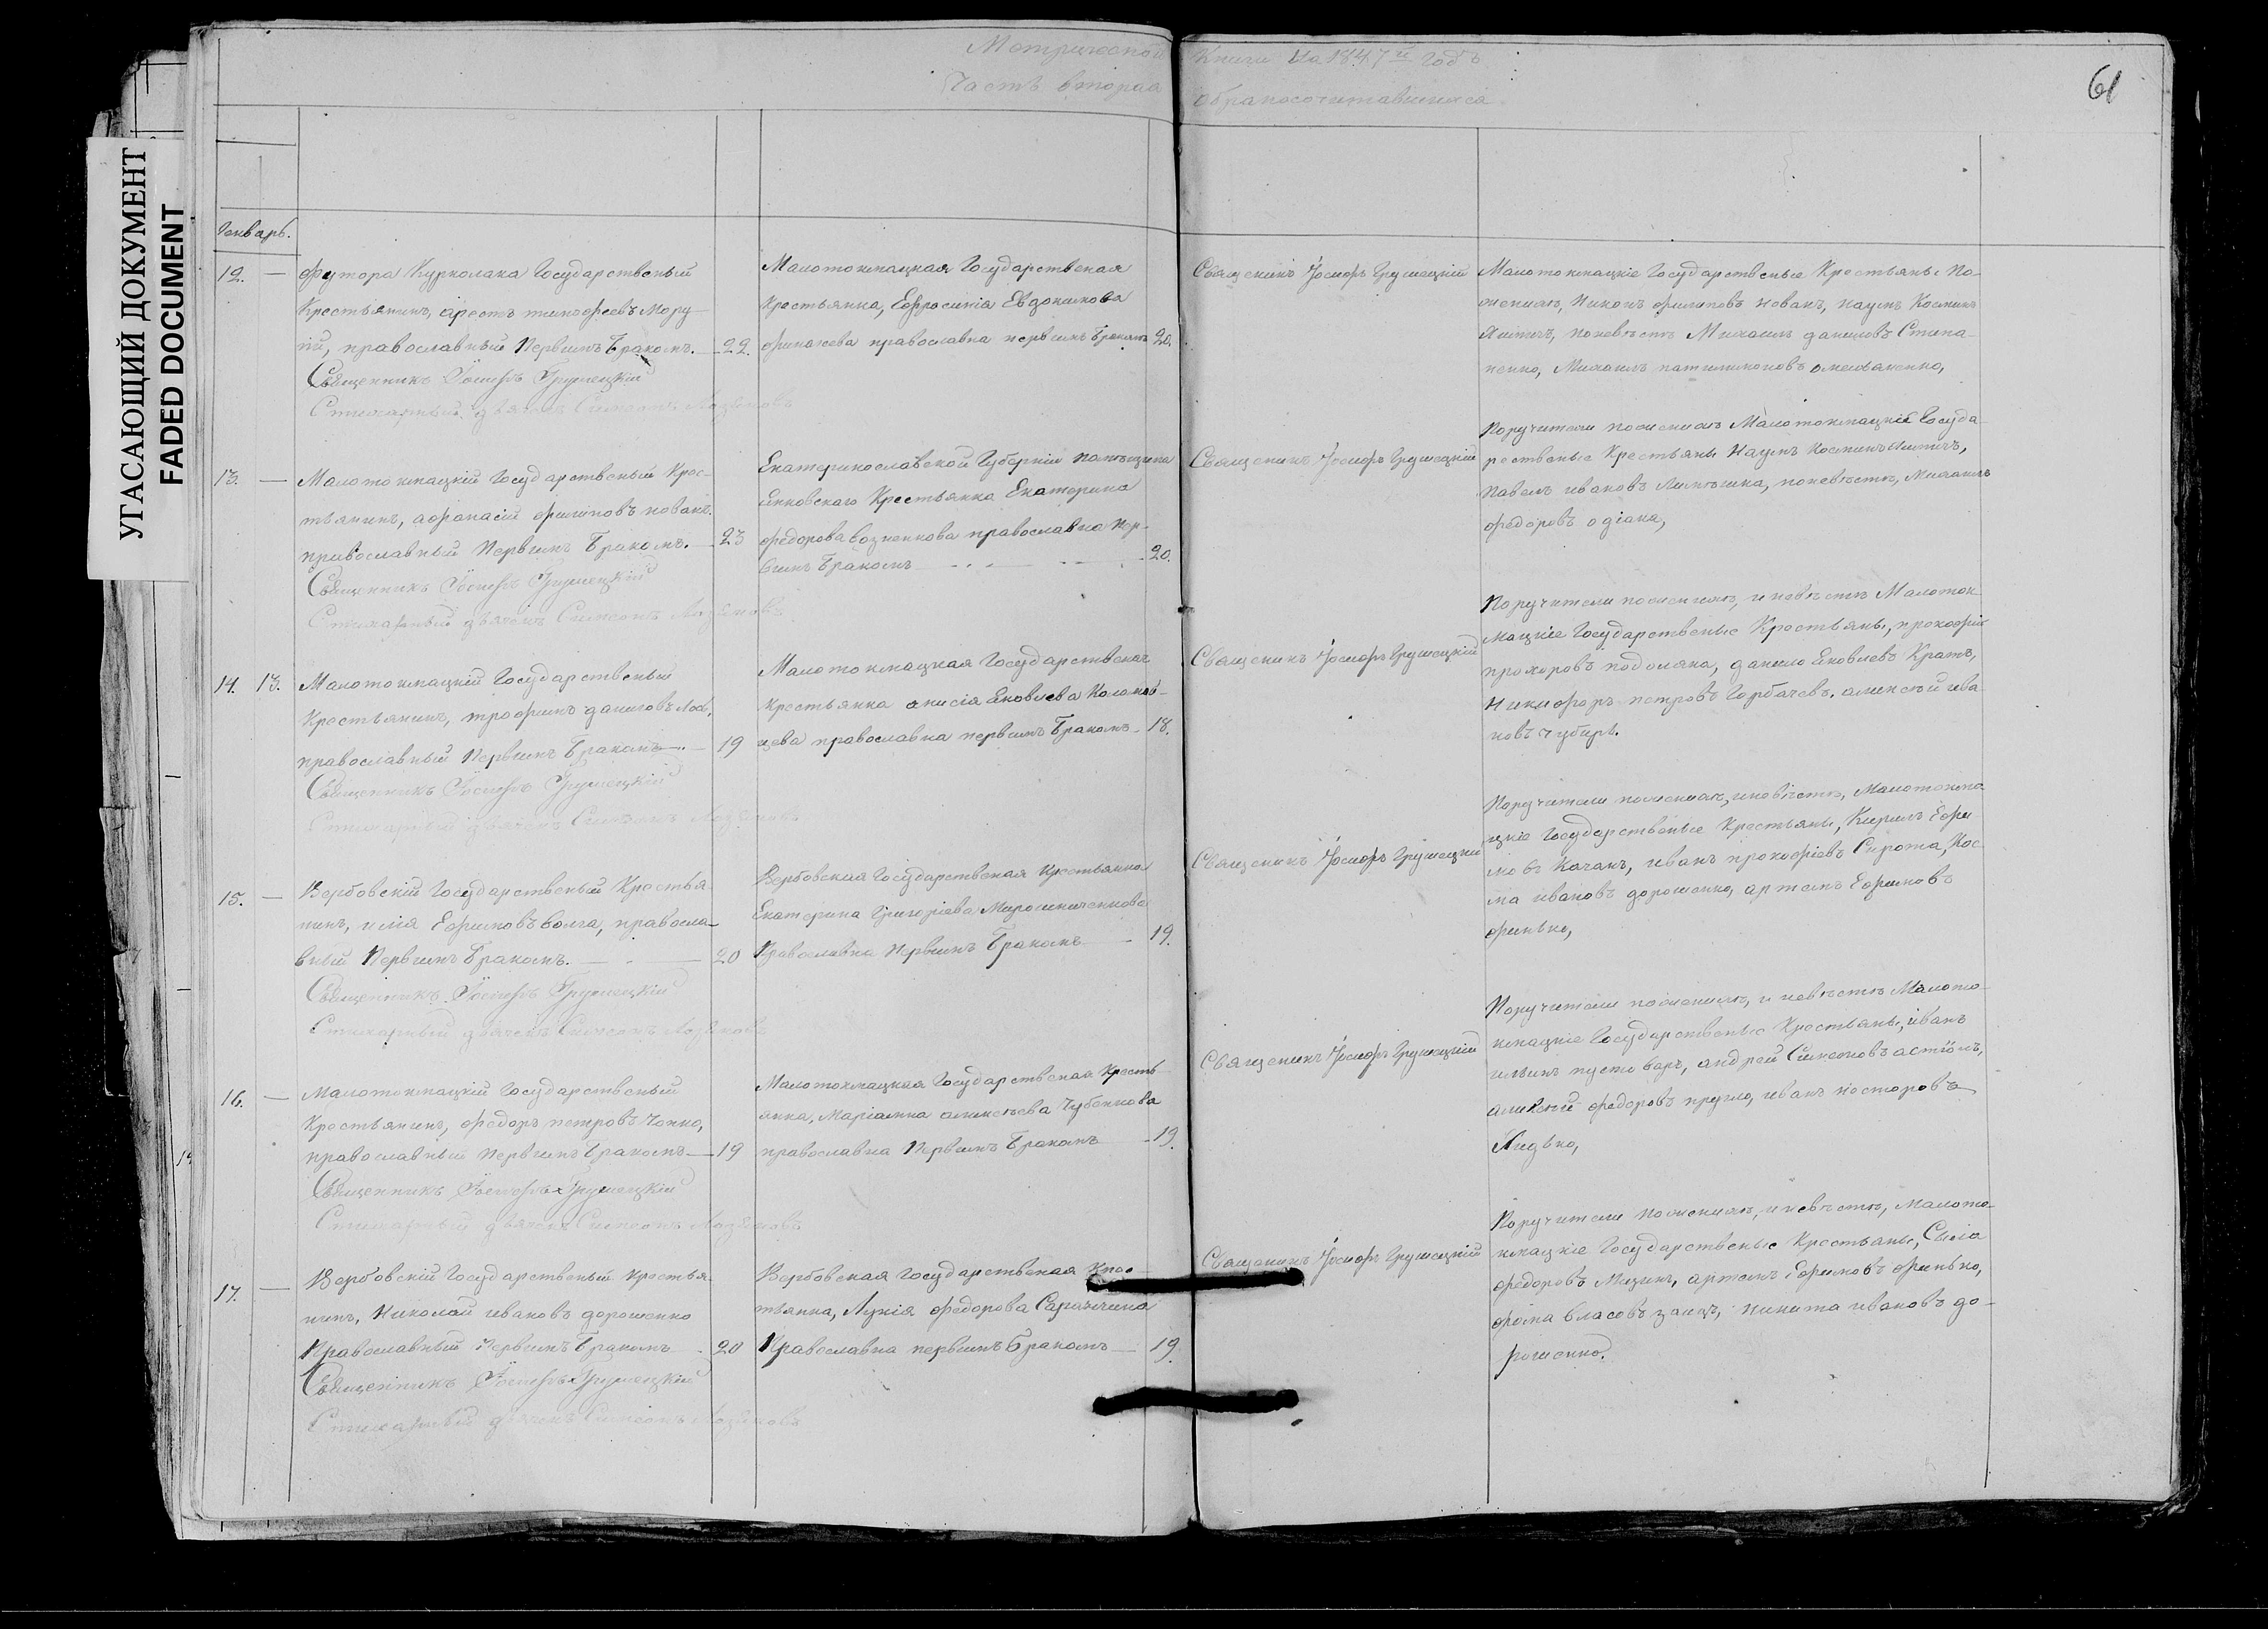 Метрической Книги На 1847й Годъ
Часть вторая обракосочитавшихся
61
УГАСАЮЩИЙ ДОКУМЕНТ
FADED DOCUMENT
Генварь.
12. —
футора Курколака Государственый
Крестьянинъ, арестъ тимофеевъ Мору-
ній, православный Первымъ Бракомъ. 22.
Священникъ Іосифъ Грушецкій
Стихарный дьячекъ Симеонъ
Малотокмацкая Государственая
Крестьянка, Ефросинія Евдокимова
православна первымъ Бракомъ 20.
Священикъ Іосифъ Грушецкій
Малотокмацкіе Государственые Крестьяны По
женихъ, Никонъ филиповъ новакъ, наумъ Косминъ
Яитичъ, поневестъ Михаилъ даниловъ Степа-
ненко, Михаилъ омельяненко,
13. —
Малотокмацкій Государственый Крес-
тьянинъ, афанасій филиповъ новакъ.
православный Первымъ Бракомъ. 23
Священникъ Іосифъ Грушецкій
Стихарный дьячекъ Симеонъ
Екатеринославской Губерніи
Крестьянка Екатерина
федорова православна Пер-
вымъ Бракомъ 20.
Священикъ Іосифъ Грушецкій
Поручители поженихъ Малотокмацкіе Госуда
рственые Крестьяны Наумъ Косминъ
Павелъ ивановъ поневестъ, Михаилъ
федоровъ одіака,
14. 13.
Малотокмацкій Государственый
Крестьянинъ, трофимъ даниловъ Лось,
православный Первымъ Бракомъ. 19
Священникъ Іосифъ Грушецкій
Стихарный дьячекъ Симеонъ
Малотокмацкая Государственая
Крестьянка анисія Яковлева Коломой-
цева православна первымъ Бракомъ 18.
Священикъ Іосифъ Грушецкій
Поручители поженихъ, и невестъ Малоток-
мацкіе Государственые Крестьяны, прокофій
прохоровъ подоляка, данило Яковлевъ
Никифоръ петровъ Горбачевъ. алексей ива
новъ чубарь.
15. —
Вербовскій Государственый Крестья
нинъ, илія Ефимовъ волга, правосла-
вный Первымъ Бракомъ. 20
Священникъ Іосифъ Грушецкій
Стихарный дьячекъ Симеонъ
Вербовская Государственая Крестьянка
Екатерина Григоріева Мирошниченкова
Православна Первымъ Бракомъ 19.
Священикъ Іосифъ Грушецкій
Поручители поженихъ, иневестъ, Малотокма
цкіе Государственые Крестьяны, Кирилъ Ефи
мовъ Качанъ, иванъ прокофіевъ Сирота, Кос
ма ивановъ дорошенко, артемъ Ефимовъ
финько,
16. —
Малотокмацкій Государственый
Крестьянинъ, федоръ петровъ
православный Первымъ Бракомъ 19
Священникъ Іосифъ Грушецкій
Стихарный дьячекъ Симеонъ
Малотокмацкая Государственая Кресть
янка, Маріамна алексеева Чубенкова
православна Первымъ Бракомъ 19.
Священикъ Іосифъ Грушецкій
Поручители поженихъ, и невестъ Малото-
кмацкіе Государственые Крестьяны, иванъ
ильинъ андрей Симеоновъ
алексей федоровъ иванъ несторовъ
17. —
Вербовскій Государственый крестья-
нинъ, Николай ивановъ дорошенко
Православный Первымъ Бракомъ 20
Священникъ Іосифъ Грушецкій
Стихарный дьячекъ Симеонъ
Вербовская Государственая Крес-
тьянка, Лукія федорова
Православна первымъ Бракомъ 19.
Священикъ Іосифъ Грушецкій
Поручители Поженихъ, и невестъ, Малото-
кмацкіе Государственые Крестьяны,
федоровъ артемъ Ефимовъ финько,
фома власовъ заецъ, никита ивановъ до-
рошенко.